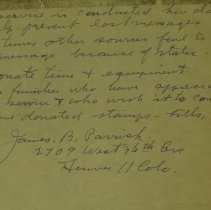 service is conducted
prevent lost messages
times other sources fail to
message because of static.
donate time & equipment
families who have
service & who wish to
donated stamps - bills,
James. B. Parrish
2709 West 36th Ave
Denver 11 Colo.